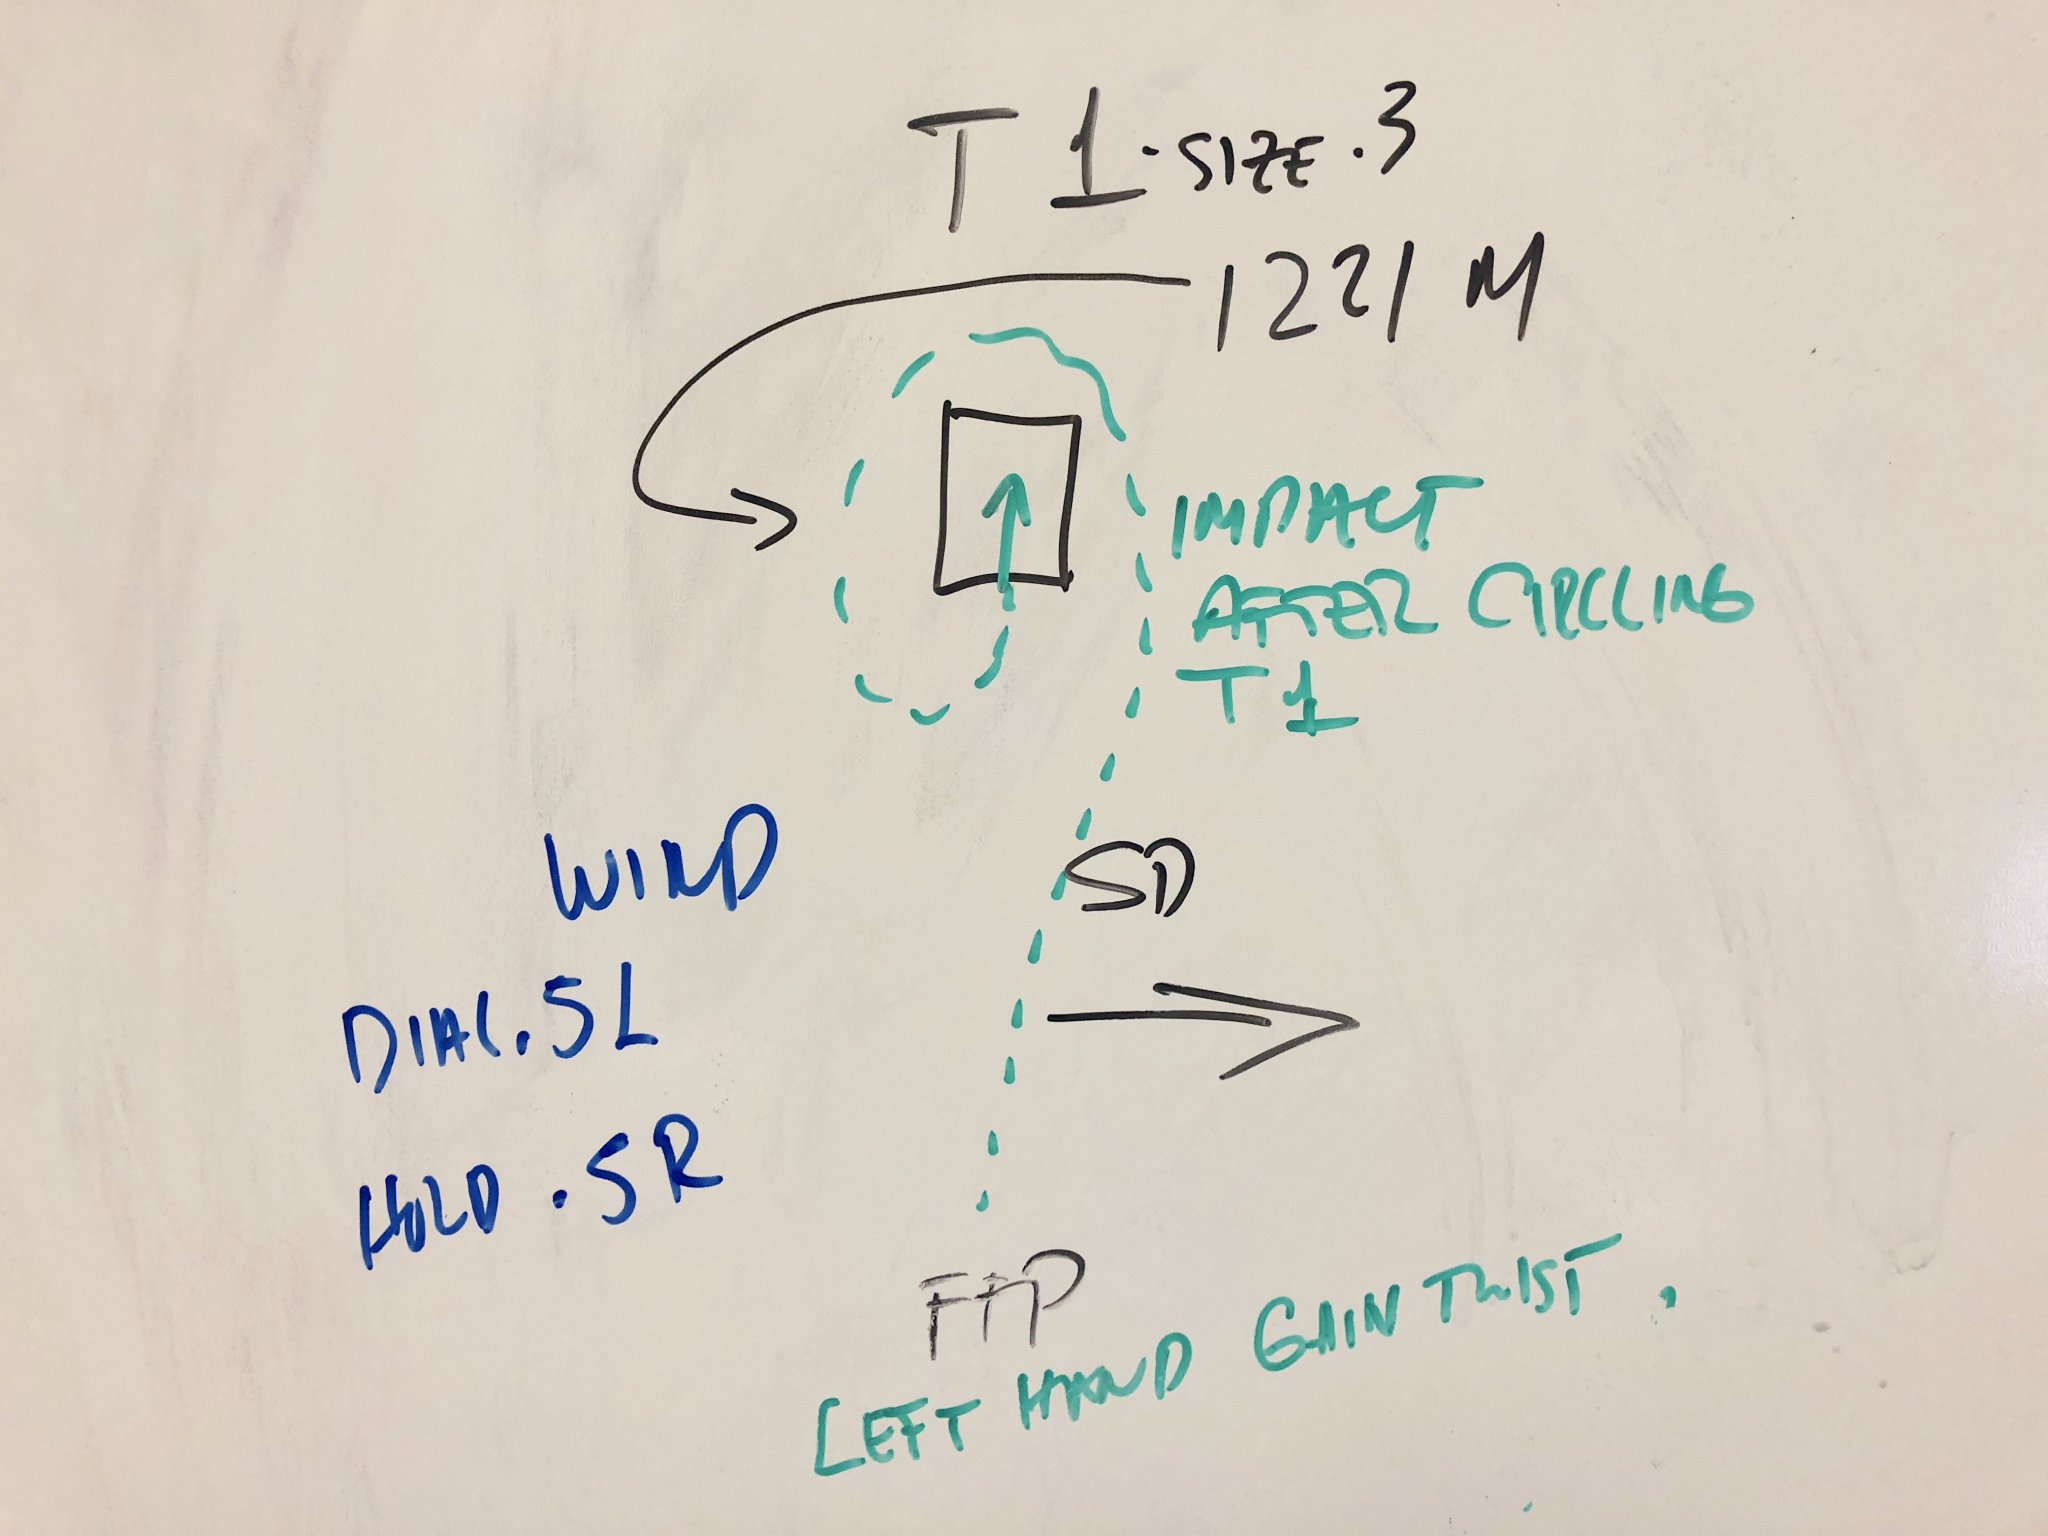 T 1 - SIZE .3
1221 M
IMPACT
AFTER CIRCLING
T 1
WIND
SD
DIAL .5 L
HOLD .5 R
FFP
LEFT HAND GAIN TWIST.